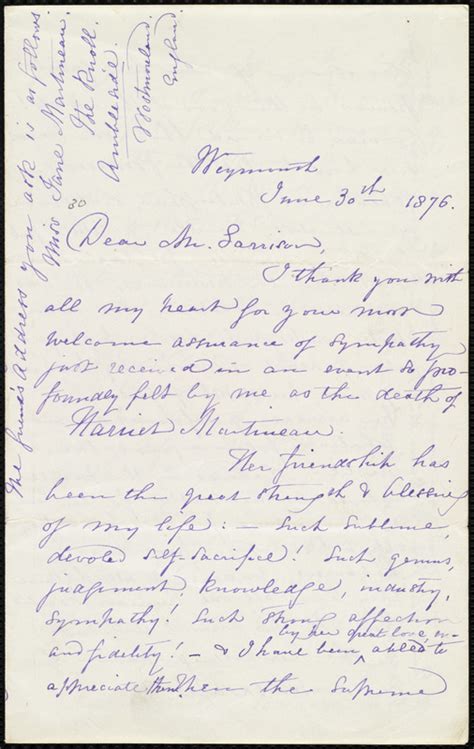 Weymouth
June 30th 1876.
30
Dear Mr. Garrison,
I thank you with
all my heart for your most
welcome assurance of sympathy
just received in an event so pro-
foundly felt by me as the death of
Harriet Martineau.
Her friendship has
been the great strength & blessing
of my life: – Such sublime,
devoted self-sacrifice! Such genius,
judgement, knowledge, industry,
sympathy! Such strong affection
and fidelity! – & I have been, by her great love, abled to
appreciate them. Then the supreme
The friend's address you ask is as follows:
Miss Jane Martineau.
The Knoll.
Ambleside.
Westmoreland.
England.